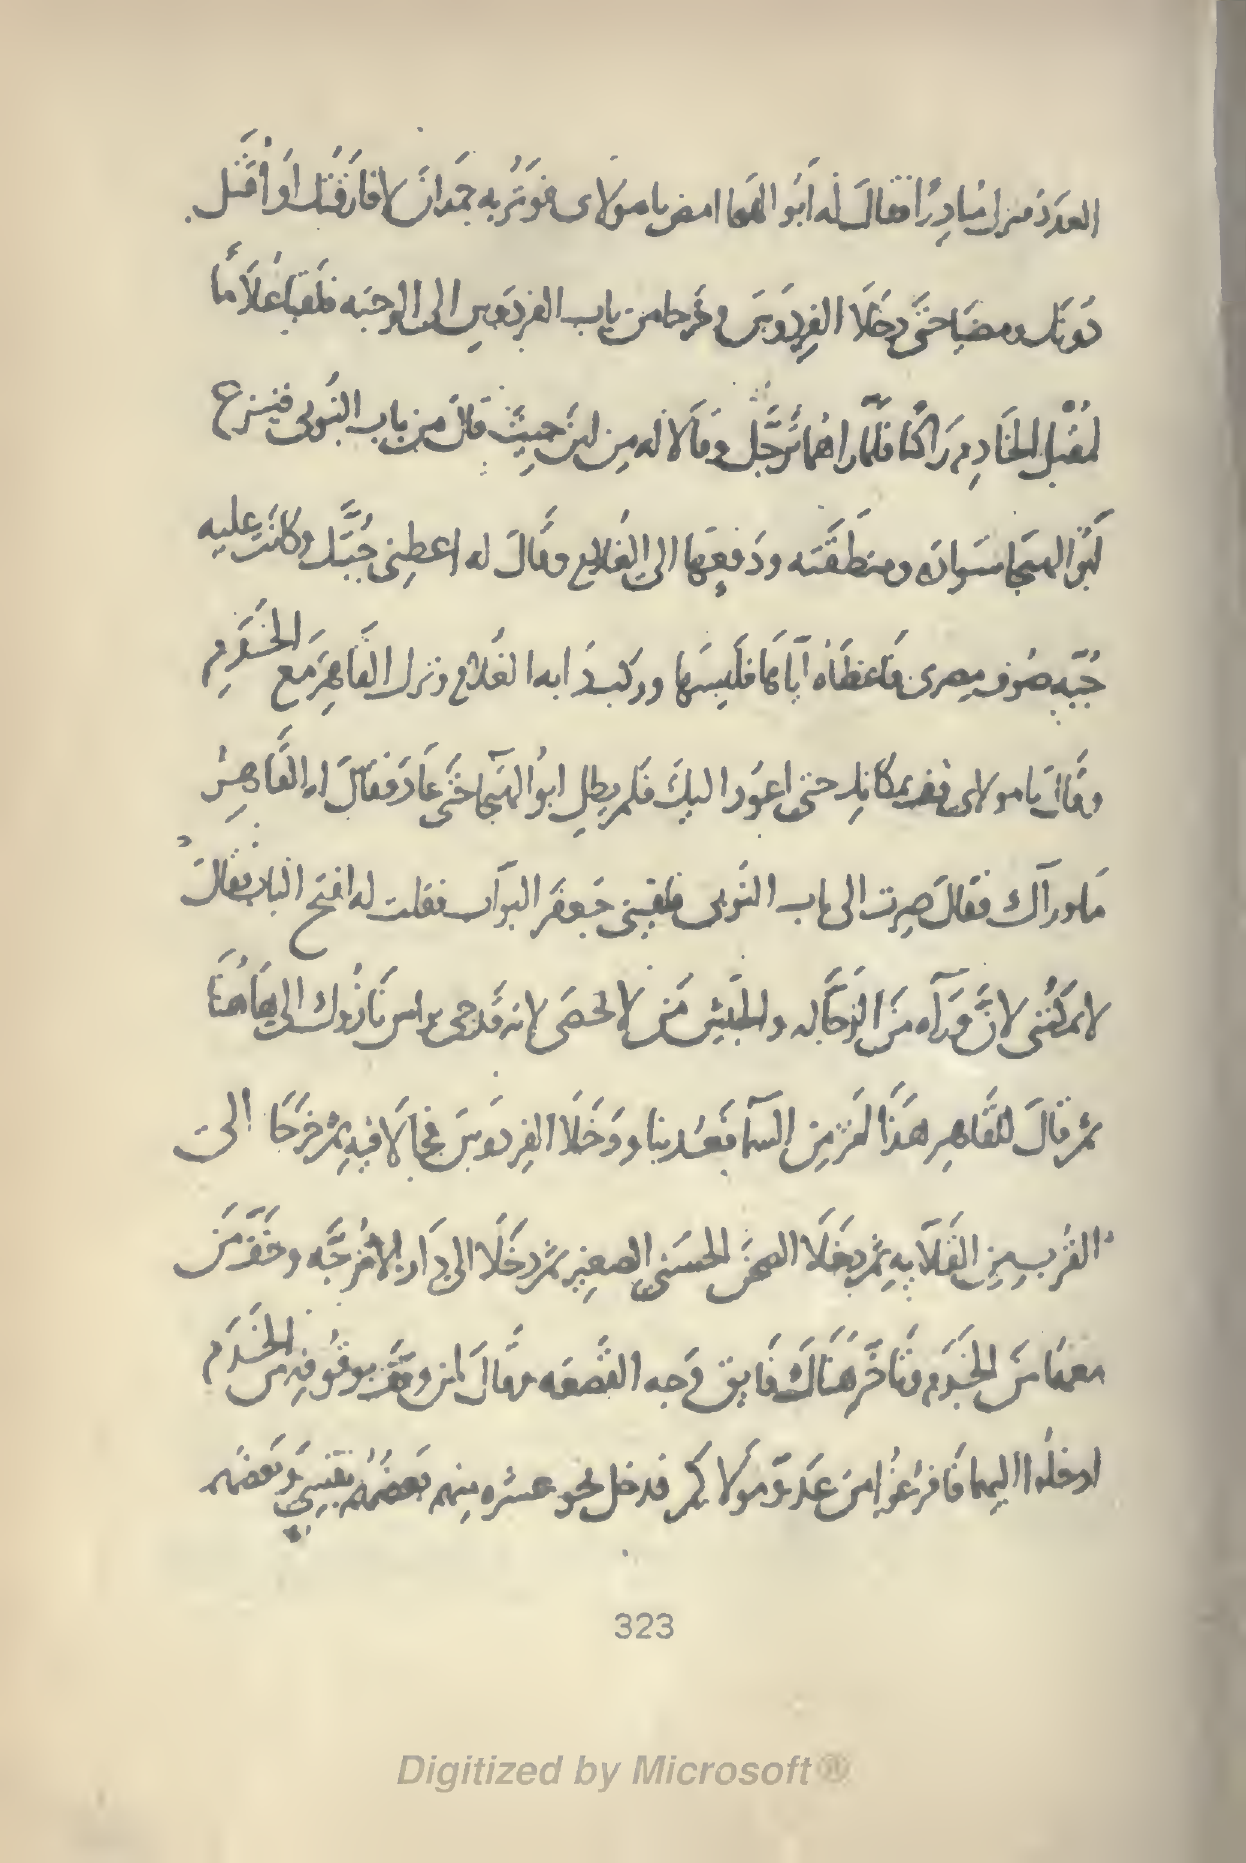 الغدر فنزل مبادرا فقال له أبو الهيجا امض يا مولاى فوتربه حمدان لا فارقتك او اقتل
دونك ومضيا حتى دخلا الفردوس وخرجا من باب الفردوس الى الرحبه فلقيا غلاما
لمقبل الخادم راكبا فلما راهما ترجل وقالا له من اين جيت قال من باب النوبى فنزع
ابو الهيجا سواده ومنطقته ودفعها الى الغلام وقال له اعطنى جبتك وكانت عليه
جبه صوف مصرى فاعطاه اياها فلبسها وركب دابه الغلام ونزل القاهر مع الخدم
وقال يا مولاى قف بمكانك حتى اعود اليك فلم يطل ابو الهيجا حتى عاد فقال له القاهر
ما وراك فقال صرت الى باب النوبى فلقينى جعفر البواب فقلت له افتح الباب فقال
لا يمكننى لان ورآه من الرجاله والجيش من لا يحصى لانه قد جى براس نازوك الى هاهنا
ثم قال للقاهر هذا امر من السما فعد بنا ودخلا الفردوس فجالا فيه ثم خرجا الى
القرب من القلايه ثم دخلا الصحن الحسنى الصغير ثم دخلا الى دار الاترجه ووقف من
معهما من الخدم وتاخر هناك فايق وجه القصعه وقال لمن وقف بوقوفه من الخدم
ادخلوا اليهما فافرغوا من عدو مولاكم فدخل نحو عشره منهم بعضهم بقسى وبعضهم
323
Digitized by Microsoft®